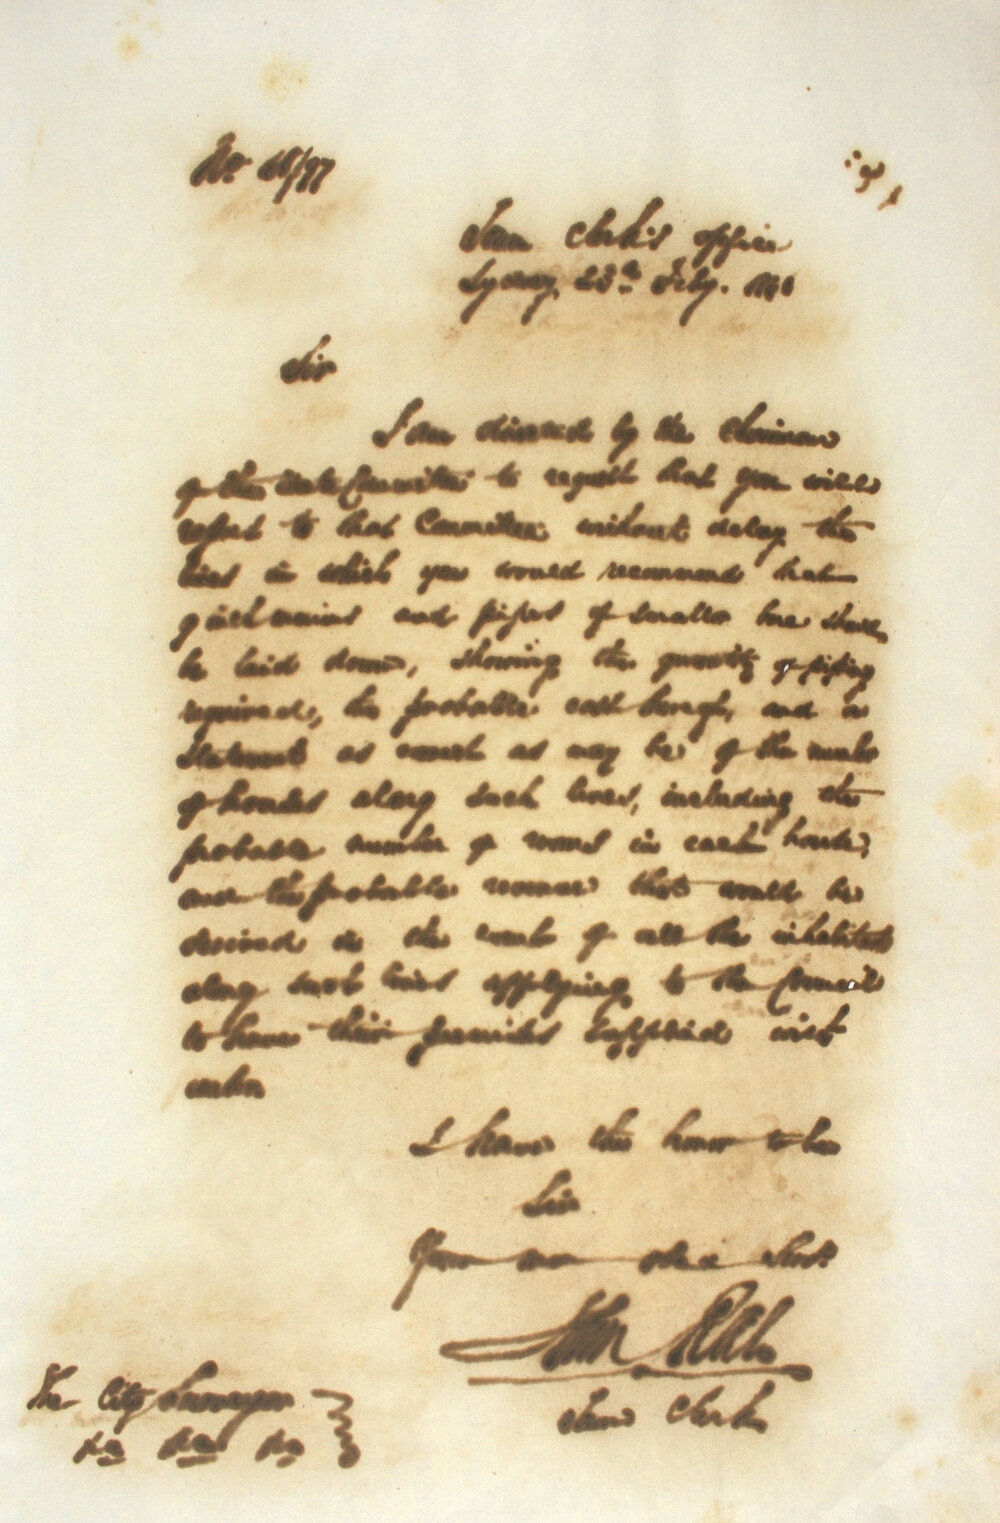 Town Clerk's office
Sydney, 23d July.
Sir
I am directed by the Chairman
of the Committee to request that you will
report to that Committee without delay the
lines in which you would recommend that
mains and pipes of smaller bore should
be laid down, showing the quantity of piping
required, the probable cost and a
statement as correct as may be of the number
of houses along such lines, including the
probable number of rooms in each house,
and the probable revenue that would be
derived in the event of all the inhabitants
along such lines applying to the Council
to have their premises supplied with
water.
I have the honor to be
Sir
Your most obedt Servt
John
Town Clerk
The City Surveyor